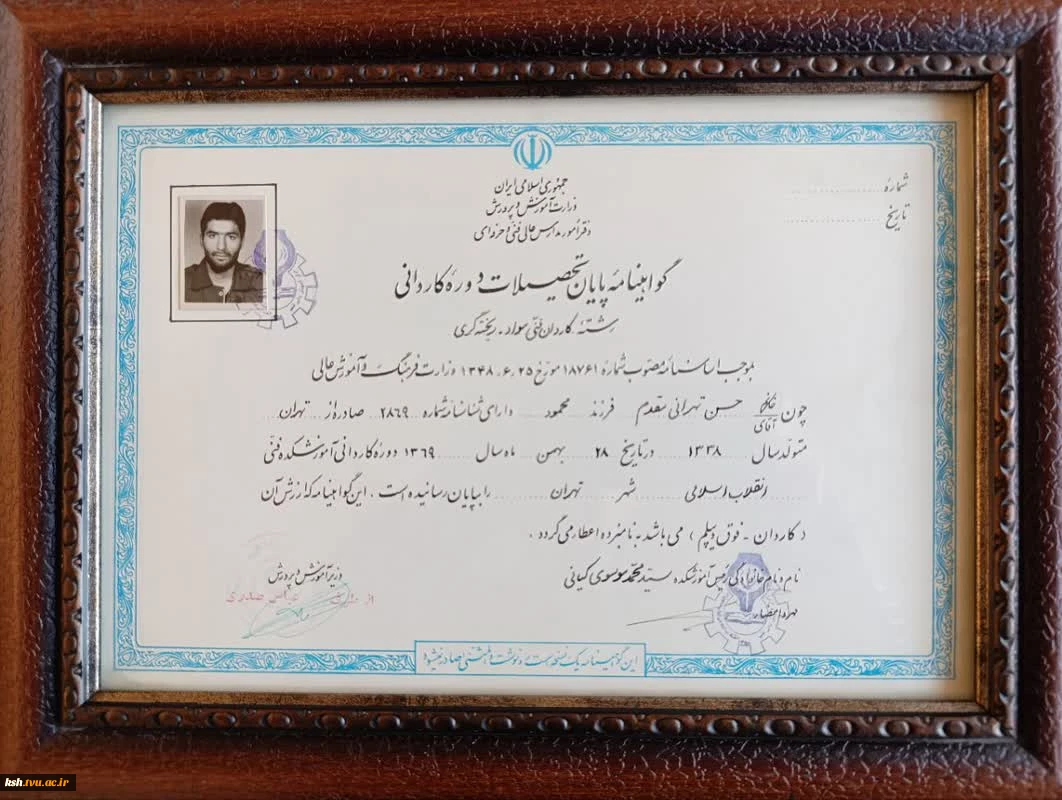 شماره
تاریخ
جمهوری اسلامی ایران
وزارت آموزش و پرورش
دفتر امور مدارس عالی فنی و حرفه‌ای
گواهینامه پایان تحصیلات دوره کاردانی
رشته کاردان فنی مواد - ریخته گری
بموجب اساسنامه مصوب شماره ۱۸۷۶۱ مورخ ۱۳۴۸.۶.۲۵ وزارت فرهنگ و آموزش عالی
چون خانم آقای حسن تهرانی مقدم فرزند محمود دارای شناسنامه شماره ۲۸۶۹ صادره از تهران
متولد سال ۱۳۳۸ در تاریخ ۲۸ بهمن ماه سال ۱۳۶۹ دوره کاردانی آموزشکده فنی
انقلاب اسلامی شهر تهران را بپایان رسانیده است . این گواهینامه که ارزش آن
( کاردان - فوق دیپلم ) می باشد به نامبرده اعطا می گردد .
نام و نام خانوادگی رئیس آموزشکده سید محمد موسوی کیانی
مهر و امضاء
وزیر آموزش و پرورش
از طرف عباس صدری
این گواهینامه یک نسخه است و رونوشت یا المثنی صادر نمیشود
ksh.tvu.ac.ir